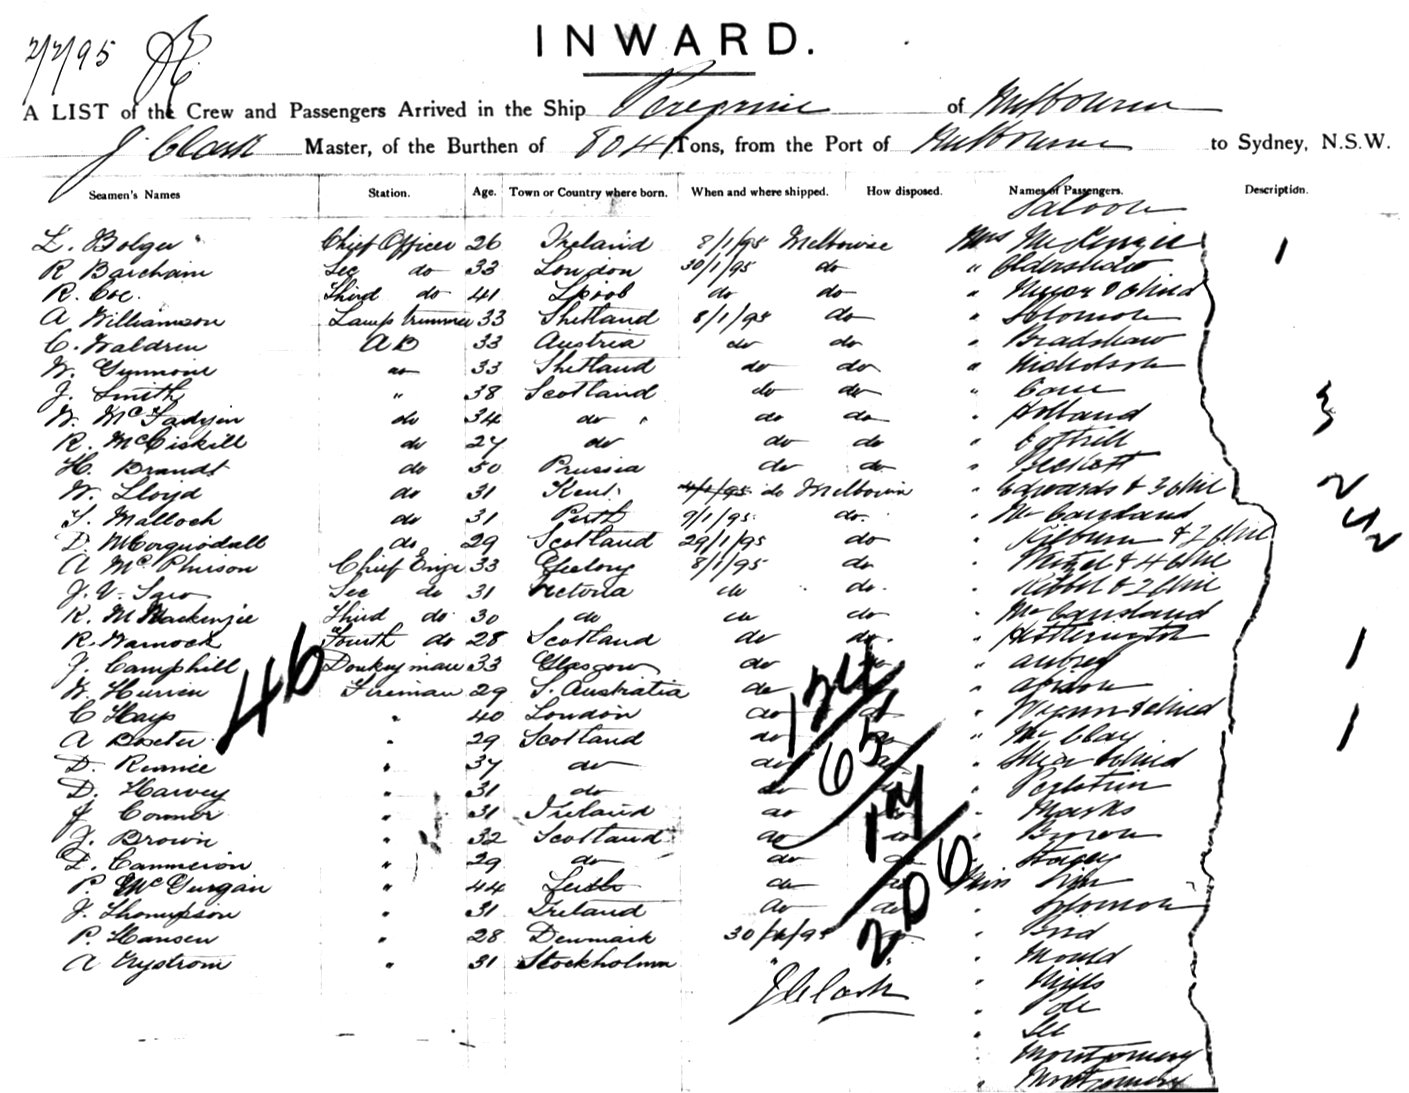 2/2/95
INWARD.
A LIST of the Crew and Passengers Arrived in the Ship Peregrine of Melbourne
J. Clark Master, of the Burthen of 804 Tons, from the Port of Melbourne to Sydney, N.S.W.
Seamen's Names Station. Age. Town or Country where born. When and where shipped. How disposed. Names of Passengers. Description.
Saloon
L. Bolger Chief Officer 26 Ireland 8/1/95 Melbourne Mrs McKenzie 1
R Barcham Sec do 33 London 30/1/95 do " Oldershaw
R. Coe. Third do 41 do do " & Child
A. Williamson Lamp trimmer 33 Shetland 8/1/95 do " Solomon
C. Waldren AB 33 Austria do do " Bradshaw
W. do 33 Shetland do do " Nicholson
J. Smith " 38 Scotland do do "
W. McFadyen do 34 do do do " Holland 3
R. McCiskill do 27 do do do " Cottrill
H. Brandt do 50 Prussia do do " Beckett
W. Lloyd do 31 Kent. 4/1/95 do Melbourne " Edwards & 3 Chil 2
T. Malloch do 31 Perth 9/1/95 do. " Mc Causland
D. McCorquodall do 29 Scotland 29/1/95 do " Kilburn & 2 Chil
A McPhirson Chief Engr 33 Geelong 8/1/95 do " & 4 Chil 2
J. V. Sec do 31 Victoria do do. " & 2 Chil
R. McMackenzie Third do 30 do do do " Mc Causland
R. Warnock Fourth do 28 Scotland do do. " Hetherington
J. Camphill Donkeyman 33 Glasgow do " Aubrey 1
W. Fireman 29 S. Australia do "
C Hays " 40 London do " & Child
A Boxter " 29 Scotland do " Mc Clay 1
D. Rennie " 37 do do " Child
D. Harvey " 31 do do " Perlstein
J Connor " 31 Ireland do " Marks
J. Brown " 32 Scotland do " Brown
D. Cammeron " 29 do do " Stacey
P. McGurgan " 44 Leith do Miss
J. Thompson " 31 Ireland do " Solomon
P. Hansen " 28 Denmark " Bird
A Nystrom " 31 Stockholm " " Mould
J Clark " Mills
" Pole
" Lee
" Montgomery
" Montgomery
46
124
65
17
206